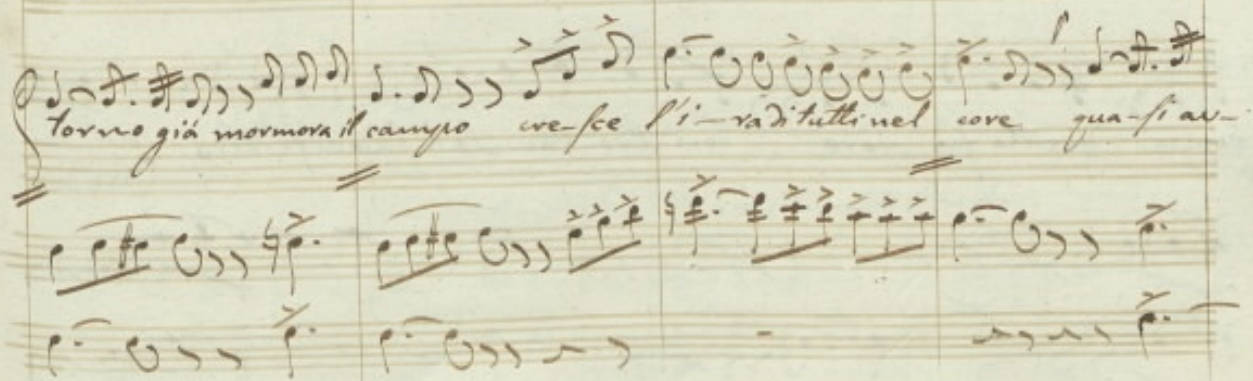 torno già mormora il campo cre-sce l'i-ra di tutti nel core qua-si av-